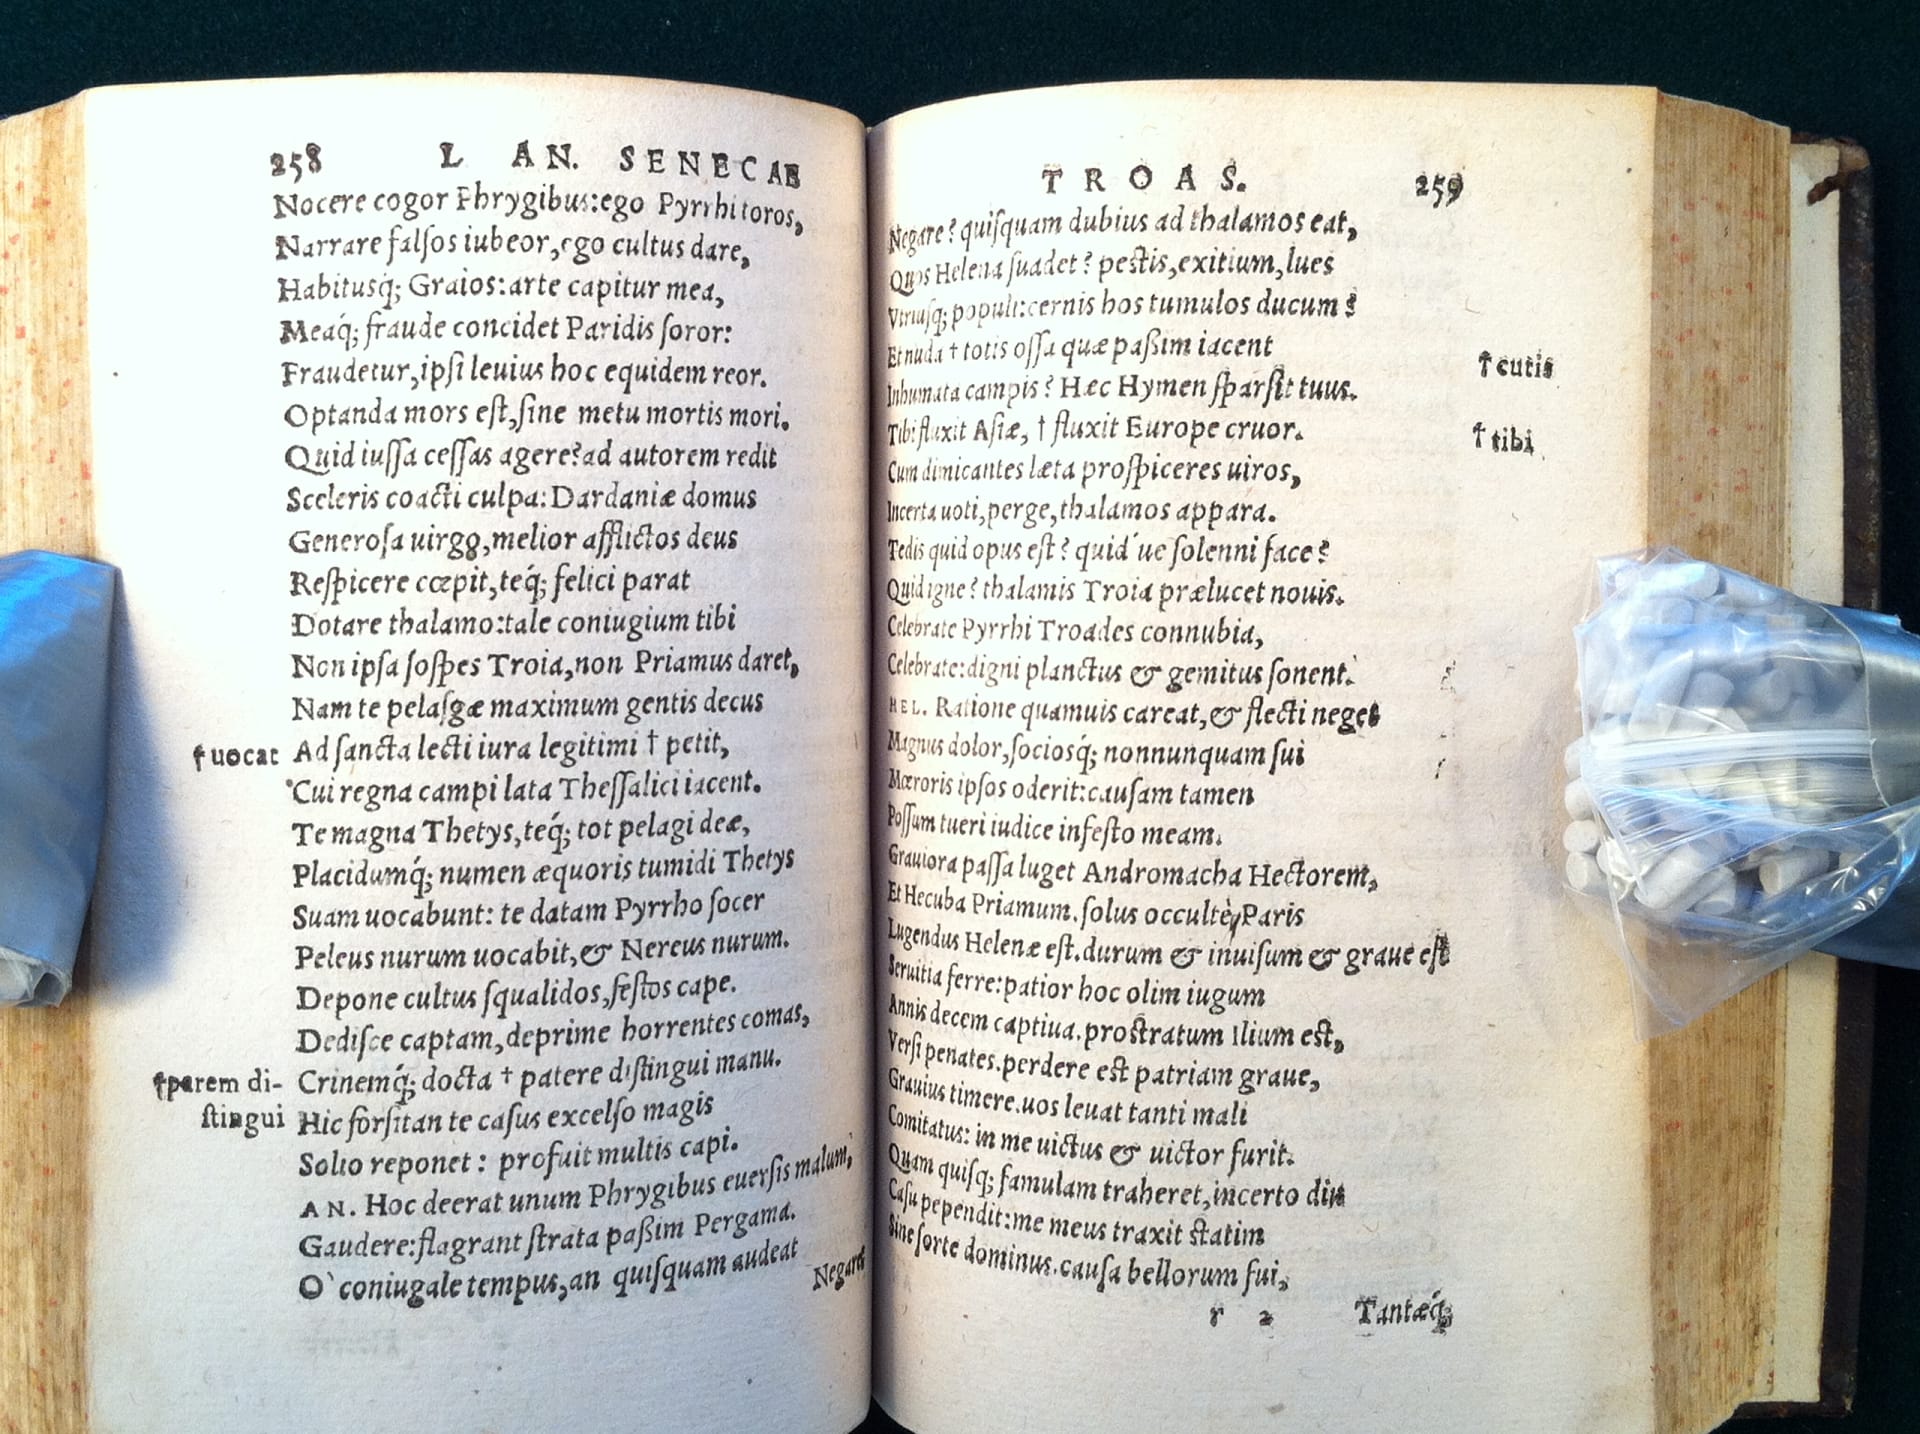 258 L AN. SENECAE
Nocere cogor Phrygibus:ego Pyrrhi toros,
Narrare falſos iubeor,ego cultus dare,
Habitusq́; Graios:arte capitur mea,
Meaq́; fraude concidet Paridis ſoror:
Fraudetur,ipſi leuius hoc equidem reor.
Optanda mors eſt,ſine metu mortis mori.
Quid iuſſa ceſſas agere?ad autorem redit
Sceleris coacti culpa:Dardaniæ domus
Generoſa uirgo,melior afflictos deus
Reſpicere cœpit,teq́; felici parat
Dotare thalamo:tale coniugium tibi
Non ipſa ſoſpes Troia,non Priamus daret,
Nam te pelaſgæ maximum gentis decus
†uocat Ad ſancta lecti iura legitimi † petit,
Cui regna campi lata Theſſalici iacent.
Te magna Thetys,teq́; tot pelagi deæ,
Placidumq́; numen æquoris tumidi Thetys
Suam uocabunt: te datam Pyrrho ſocer
Peleus nurum uocabit,& Nereus nurum.
Depone cultus ſqualidos,feſtos cape.
Dediſce captam,deprime horrentes comas,
†parem di- Crinemq́; docta † patere diſtingui manu.
ſtingui Hic forſitan te caſus excelſo magis
Solio reponet: profuit multis capi.
AN. Hoc deerat unum Phrygibus euerſis malum,
Gaudere:flagrant ſtrata paßim Pergama.
O` coniugale tempus,an quiſquam audeat
Negare
TROAS. 259
Negare? quiſquam dubius ad thalamos eat,
Quos Helena ſuadet? peſtis,exitium,lues
Vtriuſq; populi:cernis hos tumulos ducum?
Et nuda † totis oſſa quæ paßim iacent †cutis
Inhumata campis? Hæc Hymen ſparſit tuus.
Tibi fluxit Aſiæ, † fluxit Europe cruor. †tibi
Cum dimicantes læta proſpiceres uiros,
Incerta uoti,perge,thalamos appara.
Tedis quid opus eſt? quid´ue ſolenni face?
Quid igne? thalamis Troia prælucet nouis.
Celebrate Pyrrhi Troades connubia,
Celebrate:digni planctus & gemitus ſonent.
HEL. Ratione quamuis careat,& flecti neget
Magnus dolor,ſociosq́; nonnunquam ſui
Mœroris ipſos oderit:cauſam tamen
Poſſum tueri iudice infeſto meam.
Grauiora paſſa luget Andromacha Hectorem,
Et Hecuba Priamum.ſolus occultè,Paris
Lugendus Helenæ eſt.durum & inuiſum & graue eſt
Seruitia ferre:patior hoc olim iugum
Annis decem captiua.proſtratum Ilium eſt,
Verſi penates.perdere eſt patriam graue,
Grauius timere.uos leuat tanti mali
Comitatus: in me uictus & uictor furit.
Quam quiſq; famulam traheret,incerto diu
Caſu pependit:me meus traxit ſtatim
Sine ſorte dominus.cauſa bellorum fui,
r 2 Tantæq́;